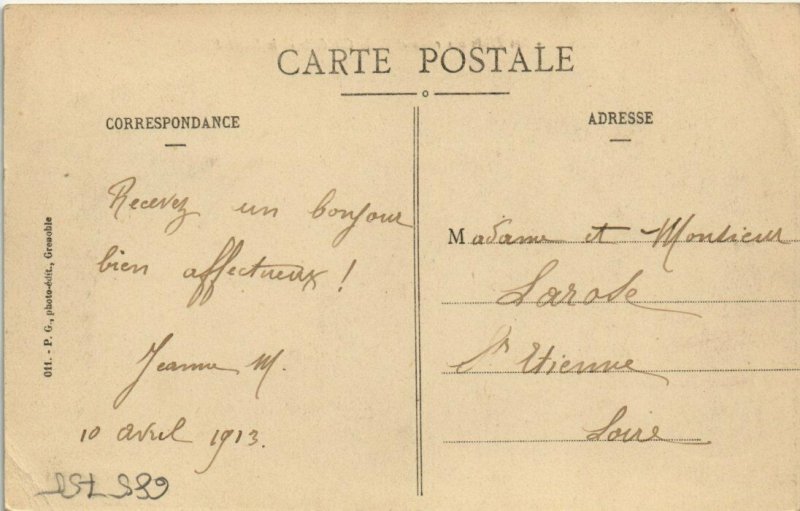 CARTE POSTALE
CORRESPONDANCE
Recevez un bonjour
bien affectueux !
Jeanne M.
10 avril 1913.
ADRESSE
Madame et Monsieur
Larose
St Etienne
Loire
011. - P. G., photo-édit., Grenoble